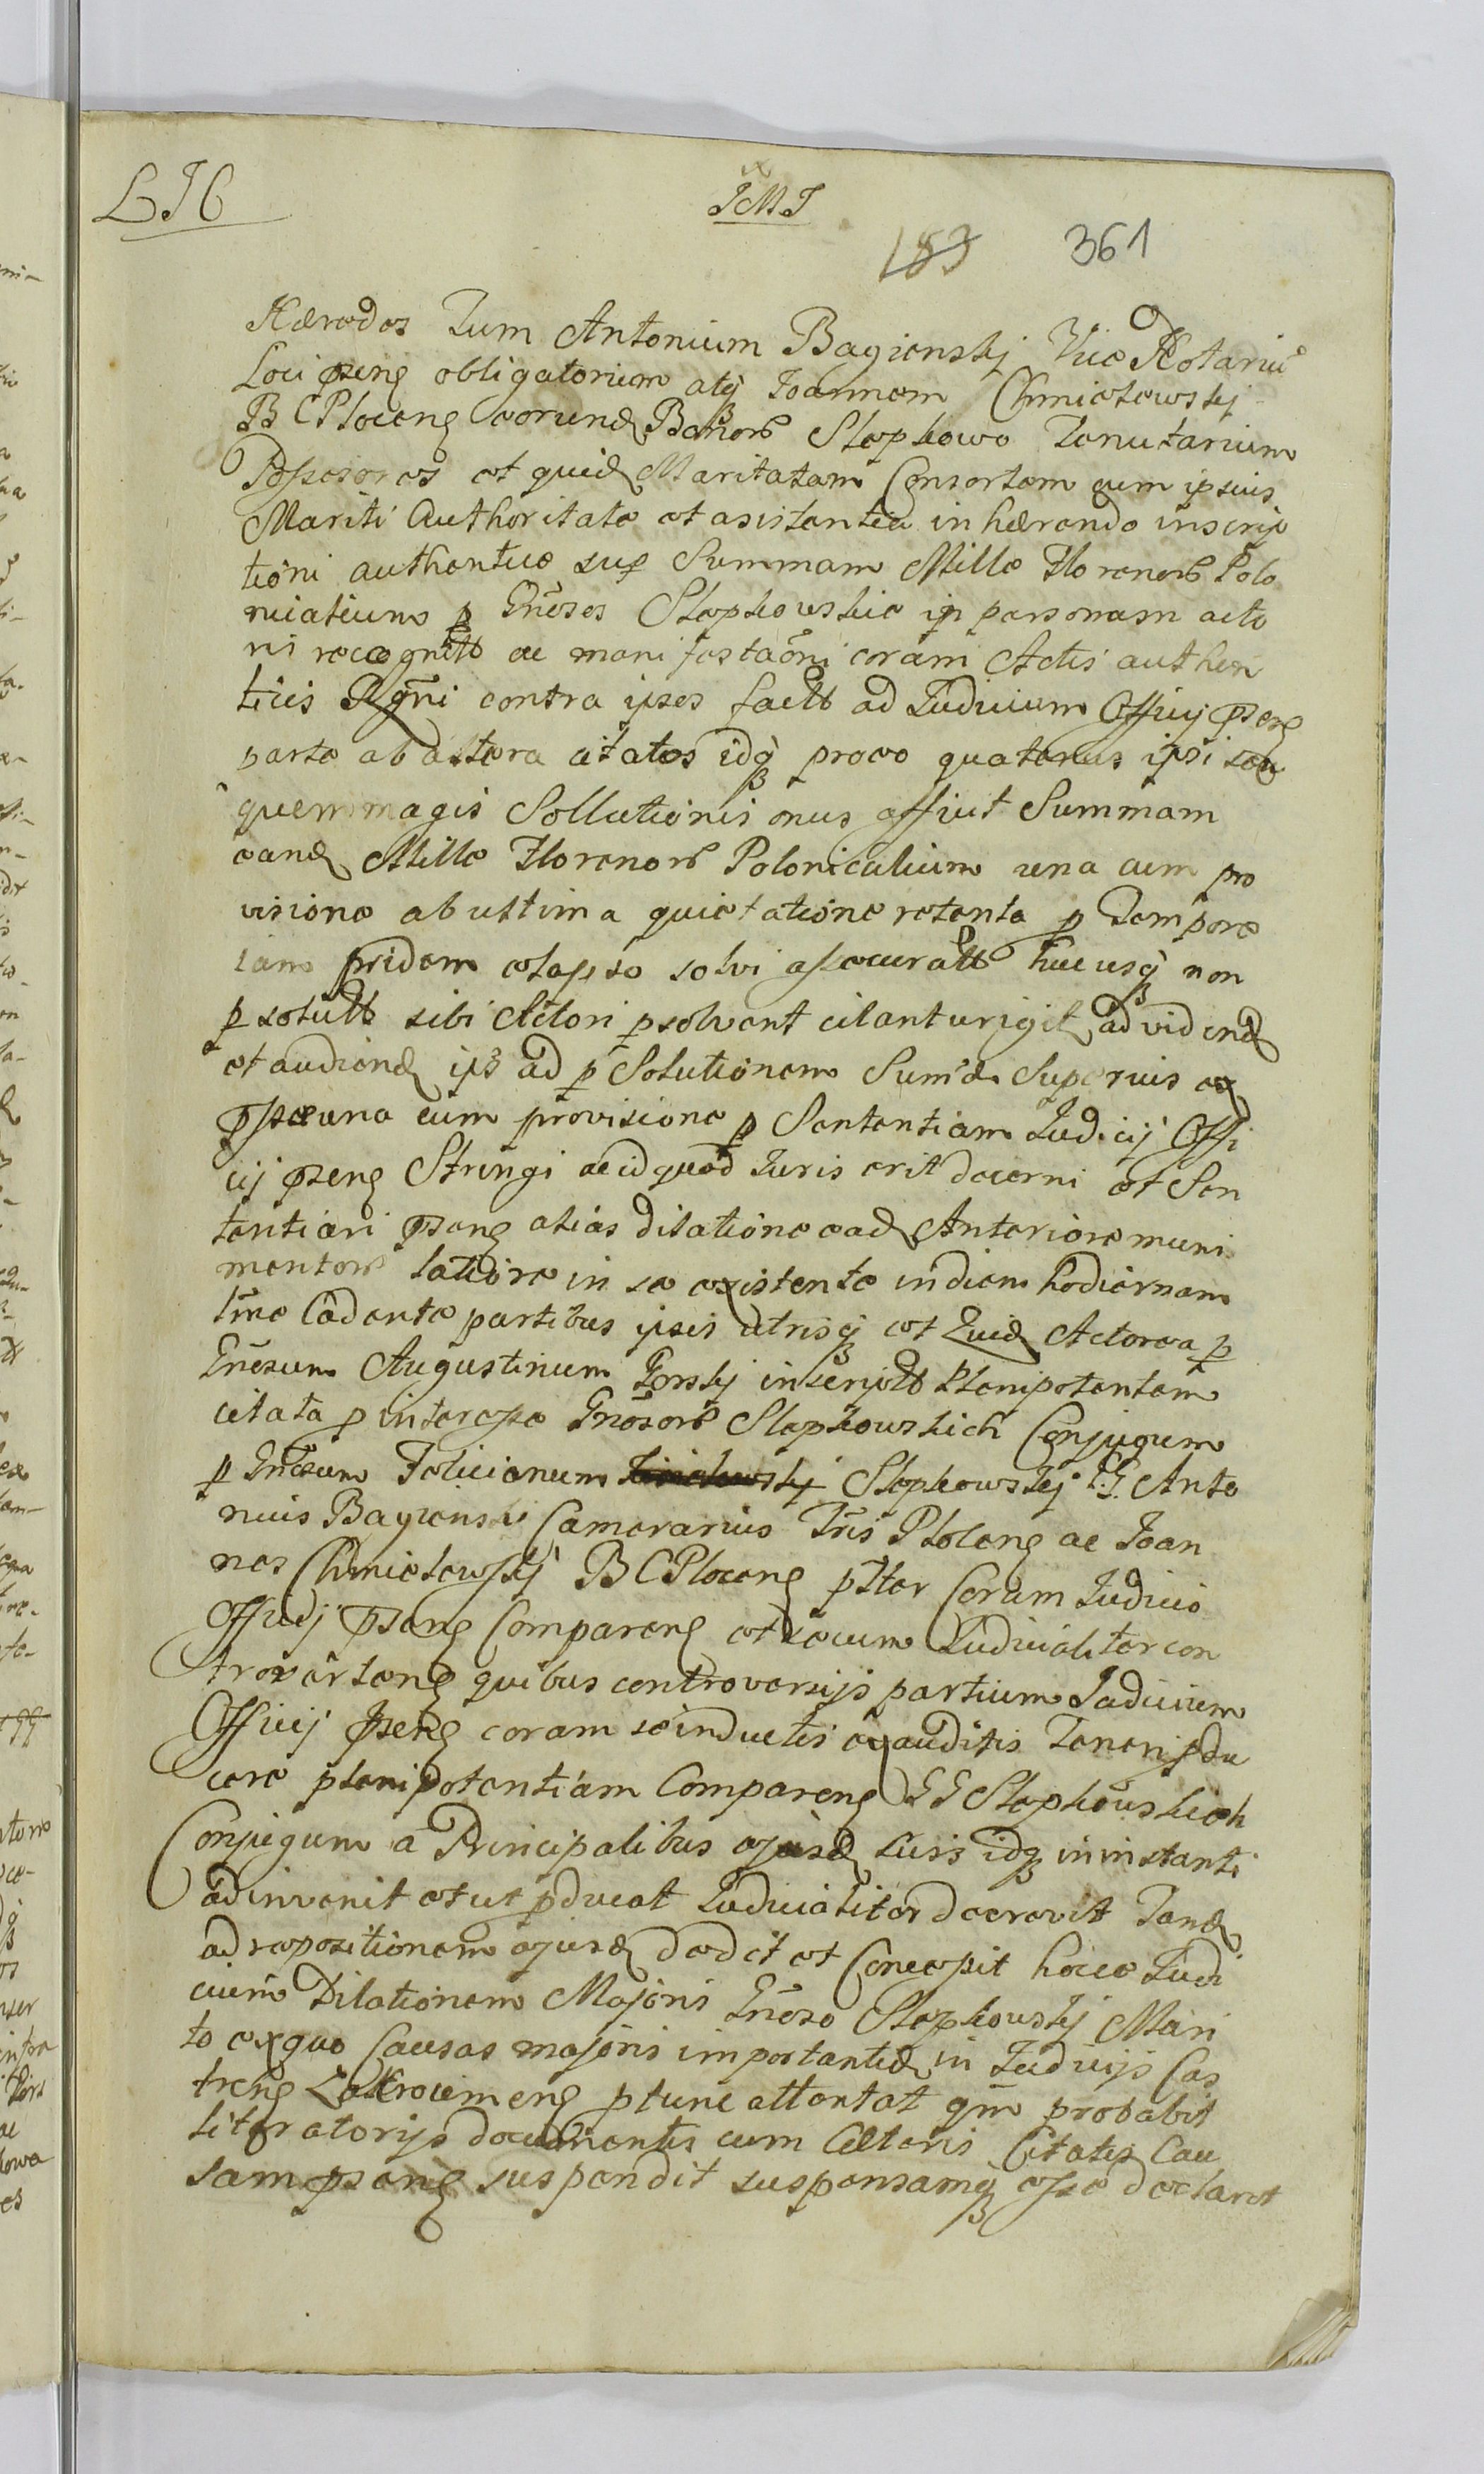 LIC
IMI
183 361
Hæredes Tum Antonium Bagienskj Vice Notariũ
Loci pñseñ obligatorium atq Joannem Chmielewskj
B C Ploceñ eorund Bonorũ Slepkowo Tenutarium
Possesores et quid Maritatam Consortem cum ipsius
Mariti Authoritate et asistentia in hærendo inscrip
tioni authenticæ sup Summam Mille Florenorũ Polo
nicaliums p Gnẽsos Slepkowskie in personam acto
ris recognitt ac manifestaõni coram Actis authen
ticis Rgñi contra ipsos factt ad Judicium Officij pñseñ
parte ab altera citatos idq proeo quatenus ipsi seu
quemmagis Sollutionis onus afficit Summam
eand Mille Florenorũ Polonicalium una cum pro
visione ab ultima quietatione retenta p Tempore
iam pridem elapso solvi assecuratt huc usq non
p solutt sibi Actori psolvant citanturigit ad vidend
et audiend ips ad p Solutionem Sumæ Superius ex
pssæ una cum provisione p Sententiam Judicij Offi
cij pñseñ Stringi ac id quod Juris erit decerni et Sen
tentiari pñseñ alias dilatione ead Anteriore muni
mentorũ latiore in se existente in diem hodiernam
tme Cadente partibus ipsis utrisq et Quid Actorea p
Gnẽsum Augustinum Gorskj inscriptt Plenipotentem
citata p interesse Gnẽsorũ Slepkowskich Conjugum
p Gnẽsum Felicianum Slepkowskj G.G. Anto
nius Bagienski Camerarius Tris Ploceñ ac Joan
nes Chmielewskj B C Ploceñ pltter Coram Judicio
Officij pñseñ Compareñ et secum Judicialiter con
troverteñ quibus controversijs partium Judicium
Officij pñseñ coram se inductis exauditis Teneri pdu
cere plenipotentiam Compareñ GG Slepkowskich
Conjugum a Principalibus ejusd suis idq in instanti
adinvenit et ut pducat Judicialiter decrevit Tand
ad repositionem ejusd dedit et Concepit hocce Judi
cium Dilationem Majoris Gnẽso Slepkowskj Mari
to exquo Causas majoris importantiæ in Judicijs Cas
treñ Zakrocimeñ ptunc attentat qm probabit
literatorijs documentis cum Cæteris Citatis Cau
sam pñseñ suspendit suspensamq esse declarat